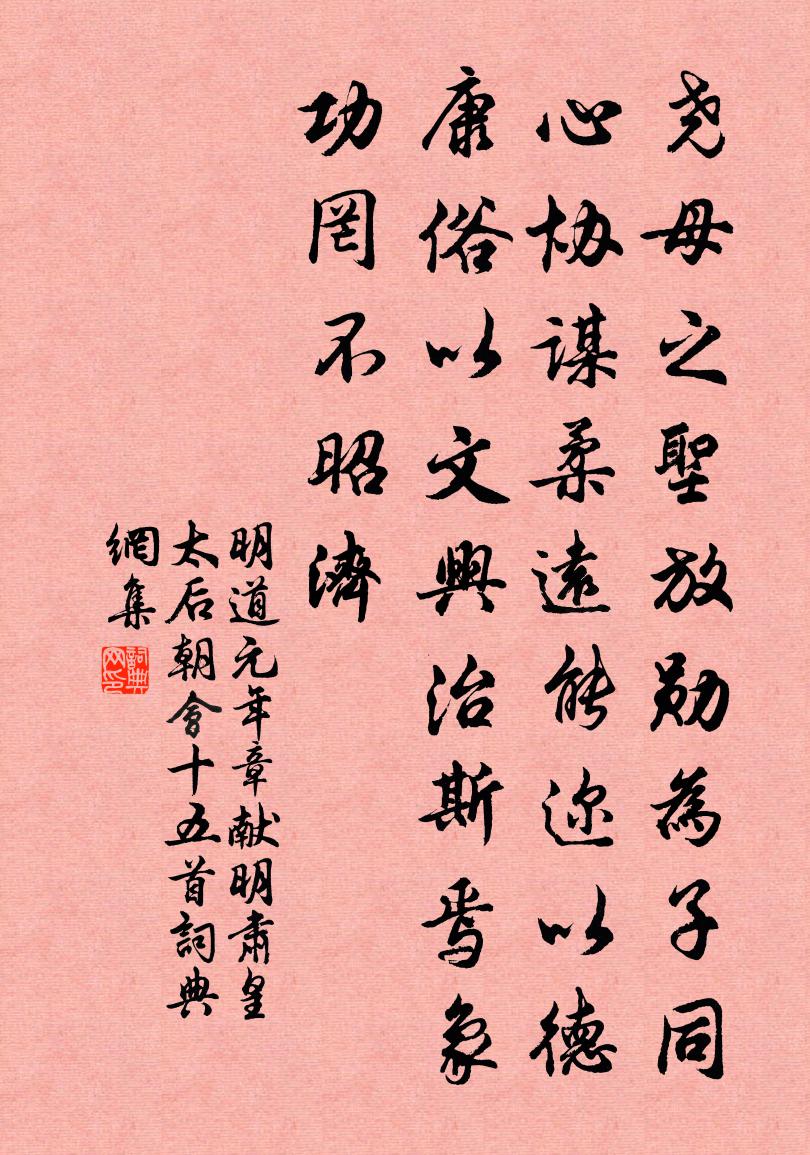 尧母之聖放勋為子同
心协谋柔遠能迩以德
康俗以文興治斯焉象
功罔不昭濟
明道元年章献明肅皇
太后朝會十五首詞典
網集
詞典网印